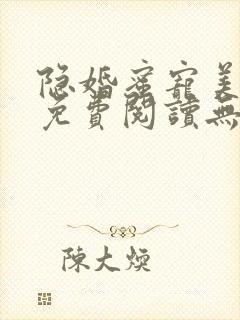 隐婚蜜宠美
免費閱讀無
陳大煥